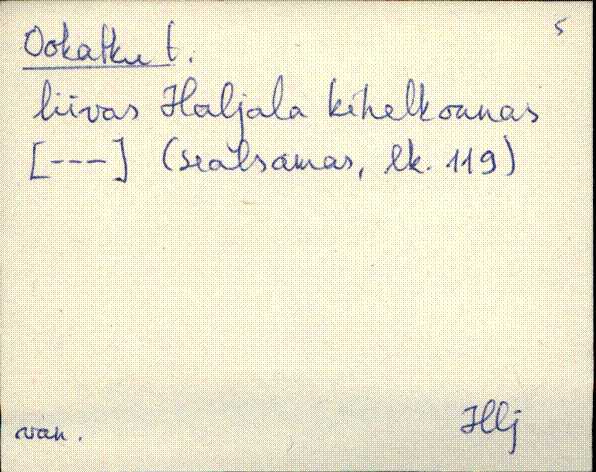 5
Ookatku t.
liivas Haljala kihelkonnas
[---] (sealsamas, lk. 119)
Hlj
van.